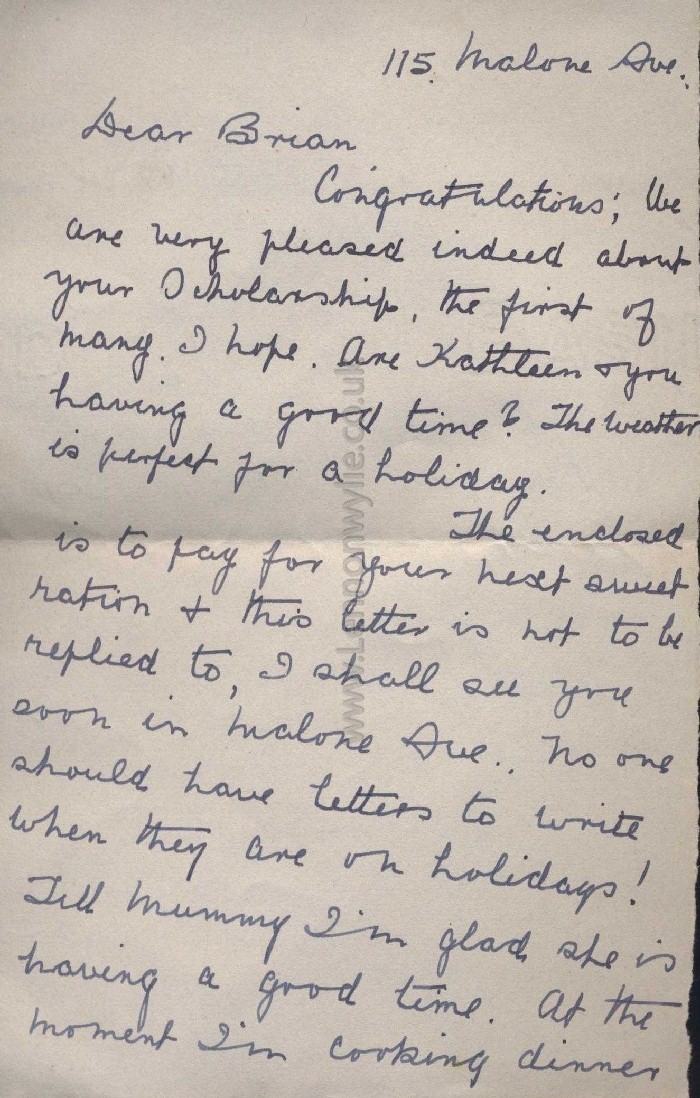 115 Malone Ave.
Dear Brian
Congratulations; We
are very pleased indeed about
your Scholarship, the first of
many. I hope. Are Kathleen & you
having a good time? The weather
is perfect for a holiday.
The enclosed
is to pay for your next sweet
ration & this letter is not to be
replied to, I shall see you
soon in Malone Ave.. No one
should have letters to write
when they are on holidays!
Tell Mummy I'm glad she is
having a good time. At the
moment I'm cooking dinner
www.Lennonwylie.co.uk